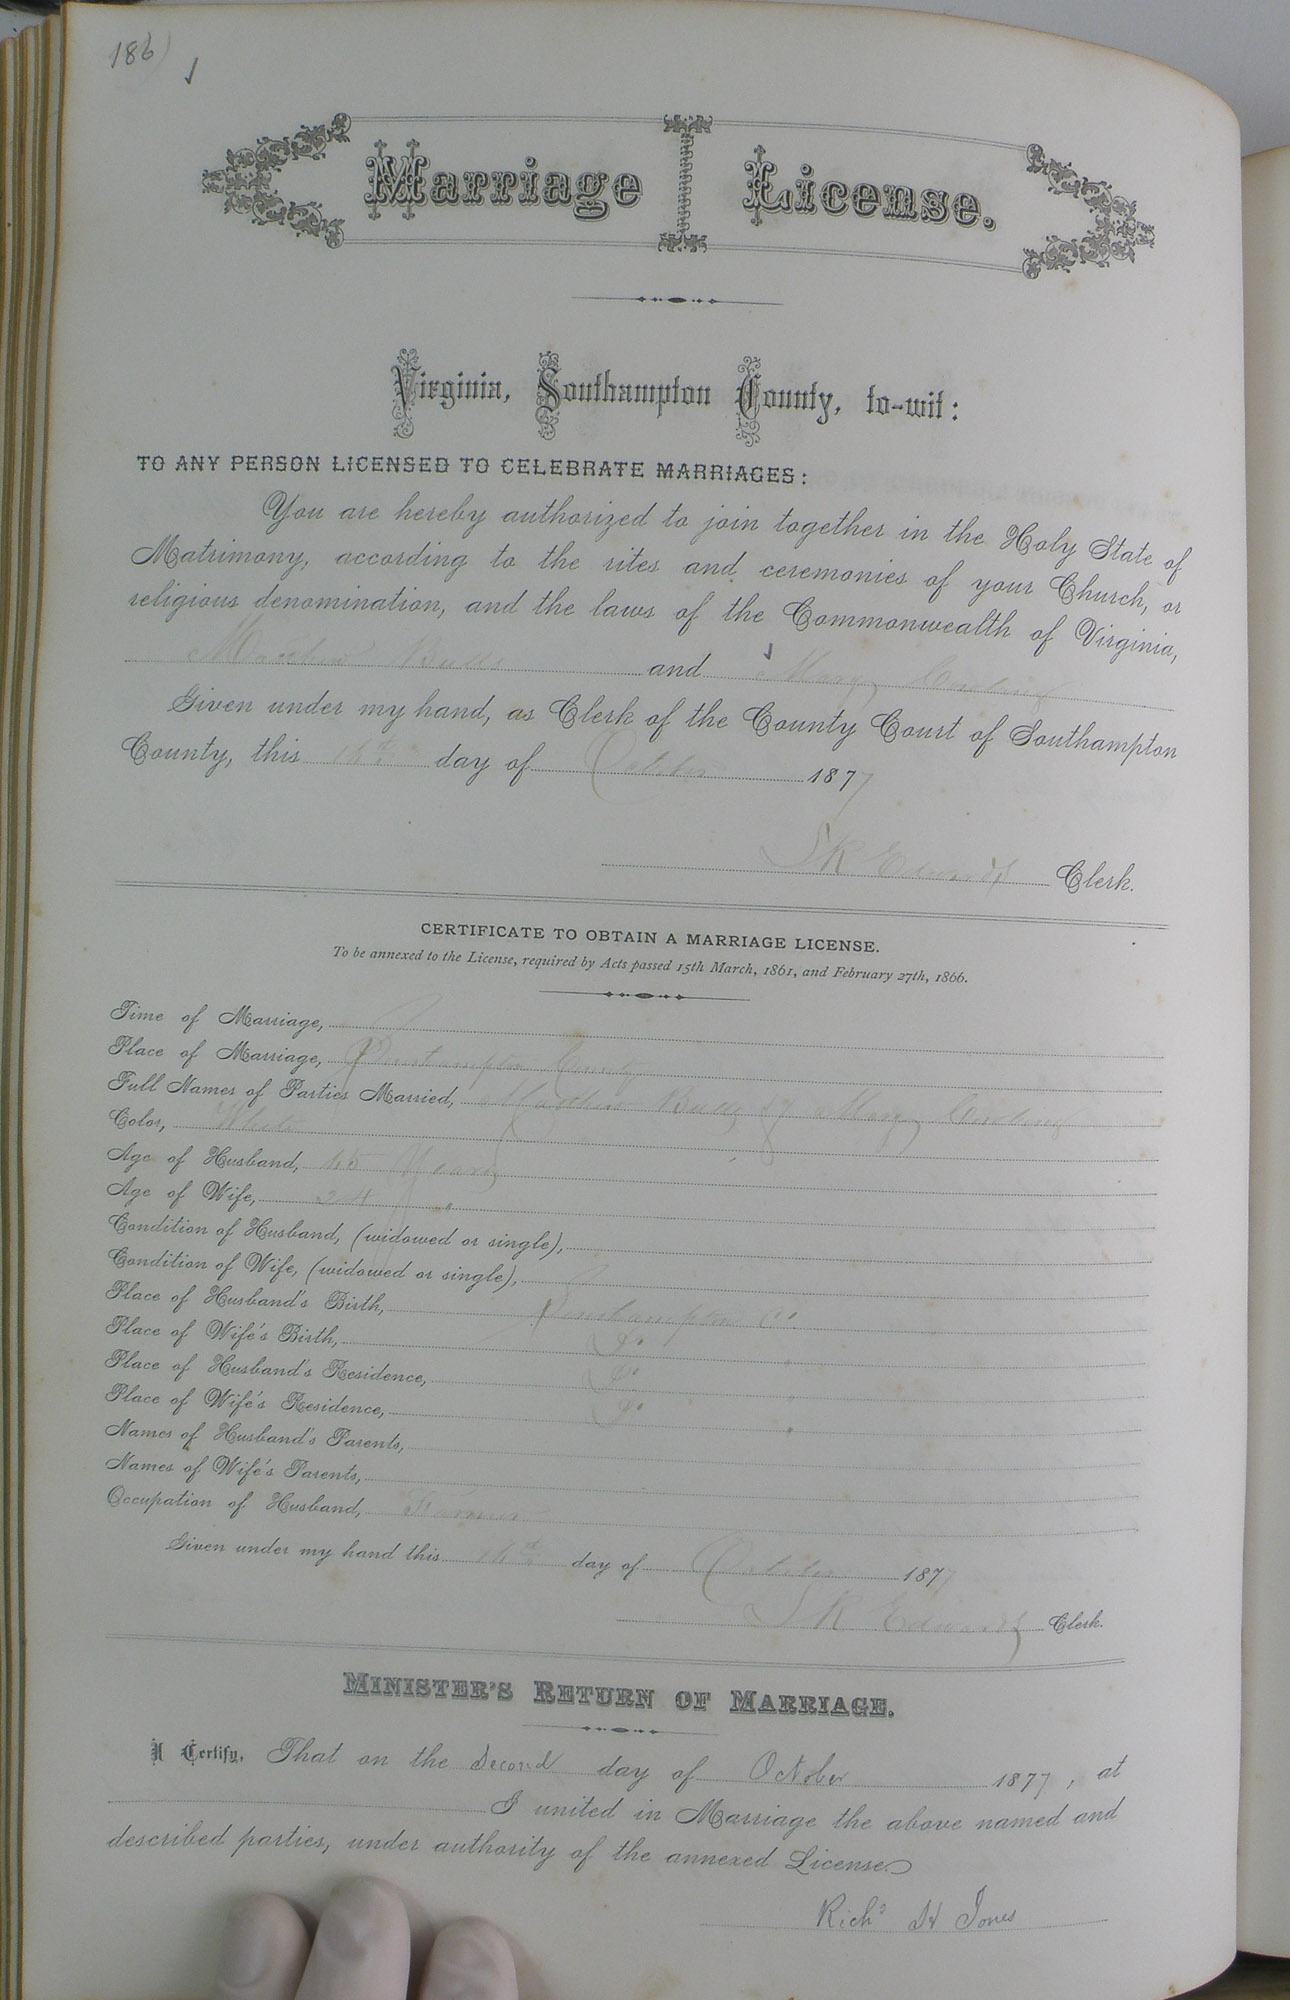 186)
Marriage License.
Virginia, Southampton County, to-wit:
TO ANY PERSON LICENSED TO CELEBRATE MARRIAGES:
You are hereby authorized to join together in the Holy State of
Matrimony, according to the rites and ceremonies of your Church, or
religious denomination, and the laws of the Commonwealth of Virginia,
and Mary
Given under my hand, as Clerk of the County Court of Southampton
County, this day of October 1877
Edwards Clerk.
CERTIFICATE TO OBTAIN A MARRIAGE LICENSE.
To be annexed to the License, required by Acts passed 15th March, 1861, and February 27th, 1866.
Time of Marriage,
Place of Marriage, Southampton County
Full Names of Parties Married, & Mary
Color, White
Age of Husband, Years
Age of Wife, 24 "
Condition of Husband, (widowed or single),
Condition of Wife, (widowed or single),
Place of Husband's Birth, Southampton Co.
Place of Wife's Birth, Do "
Place of Husband's Residence, Do "
Place of Wife's Residence, Do "
Names of Husband's Parents,
Names of Wife's Parents,
Occupation of Husband, Farmer
Given under my hand this day of October 1877
R Edwards Clerk.
MINISTER'S RETURN OF MARRIAGE.
I Certify, That on the Second day of October 1877, at
I united in Marriage the above named and
described parties, under authority of the annexed License.
Richd H Jones